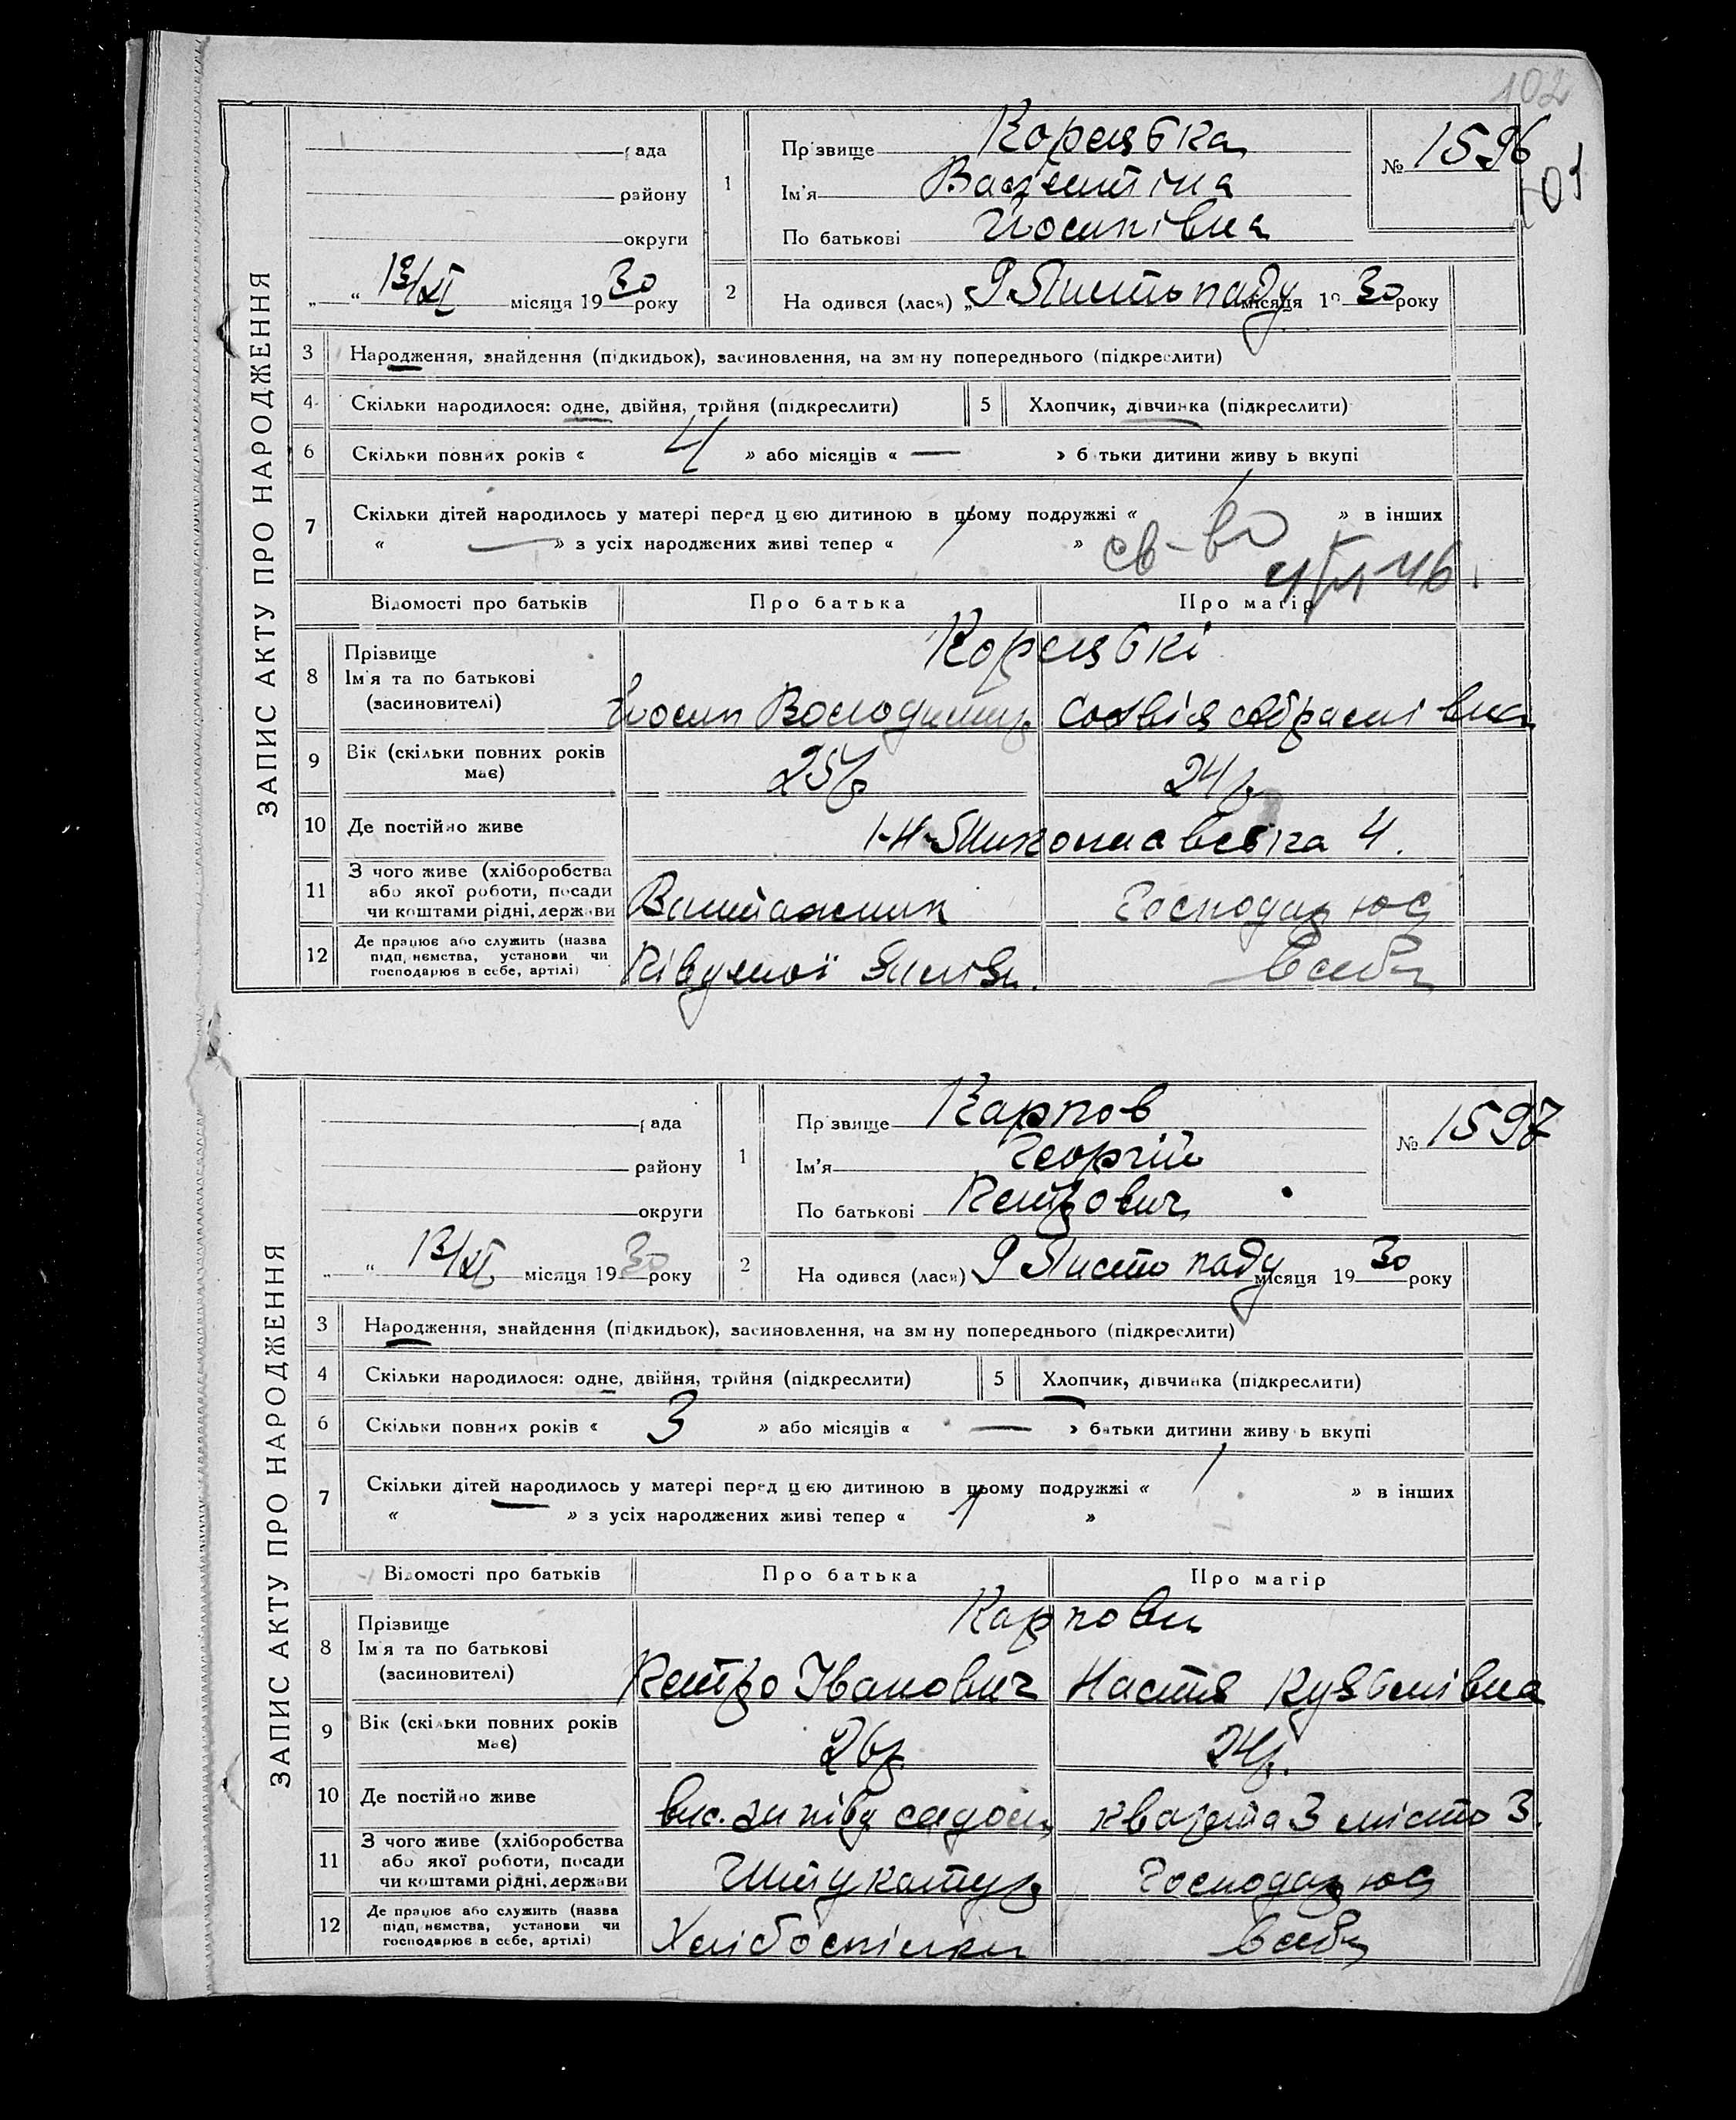 102
ЗАПИС АКТУ ПРО НАРОДЖЕННЯ
рада
району
округи
„ “ 13/XI місяця 1930 року
1
Прізвище Корецька
Ім'я Валентіна
По батькові Йосипівна
№ 1596
01
2 Народився (лася) „9 Листопаду місяця 1930 року
3 Народження, знайдення (підкидьок), засиновлення, на зміну попереднього (підкреслити)
4 Скільки народилося: одне, двійня, трійня (підкреслити) 5 Хлопчик, дівчинка (підкреслити)
6 Скільки повних років « 4 » або місяців « — » батьки дитини живуть вкупі
7 Скільки дітей народилось у матері перед цією дитиною в цьому подружжі « 1 » в інших
« — » з усіх народжених живі тепер « 1 »
св-во
Відомості про батьків Про батька Про матір
8 Прізвище
Ім'я та по батькові
(засиновителі)
Корецькі
Йосип Володимир Софвія Абрамівна
9 Вік (скільки повних років
має)
25р 24р
10 Де постійно живе
11 З чого живе (хліборобства
або якої роботи, посади
чи коштами рідні, держави
Вантажник Господарює
12 Де працює або служить (назва
підприємства, установи чи
господарює в себе, артілі)
Південої Заліз. Всебе
ЗАПИС АКТУ ПРО НАРОДЖЕННЯ
рада
району
округи
„ “ 13/XI місяця 1930 року
1
Прізвище Карпов
Ім'я Георгій
По батькові Петрович
№ 1597
2 Народився (лася) 9 Листопаду місяця 1930 року
3 Народження, знайдення (підкидьок), засиновлення, на зміну попереднього (підкреслити)
4 Скільки народилося: одне, двійня, трійня (підкреслити) 5 Хлопчик, дівчинка (підкреслити)
6 Скільки повних років « 3 » або місяців « — » батьки дитини живуть вкупі
7 Скільки дітей народилось у матері перед цією дитиною в цьому подружжі « 1 » в інших
« — » з усіх народжених живі тепер « 1 »
Відомості про батьків Про батька Про матір
8 Прізвище
Ім'я та по батькові
(засиновителі)
Карпови
Петро Іванович Настя Кузьмівна
9 Вік (скільки повних років
має)
26р 24р.
10 Де постійно живе
садом кварта 3 місто 3.
11 З чого живе (хліборобства
або якої роботи, посади
чи коштами рідні, держави
Штукатур Господарює
12 Де працює або служить (назва
підприємства, установи чи
господарює в себе, артілі)
Хлібоспілки Всебе